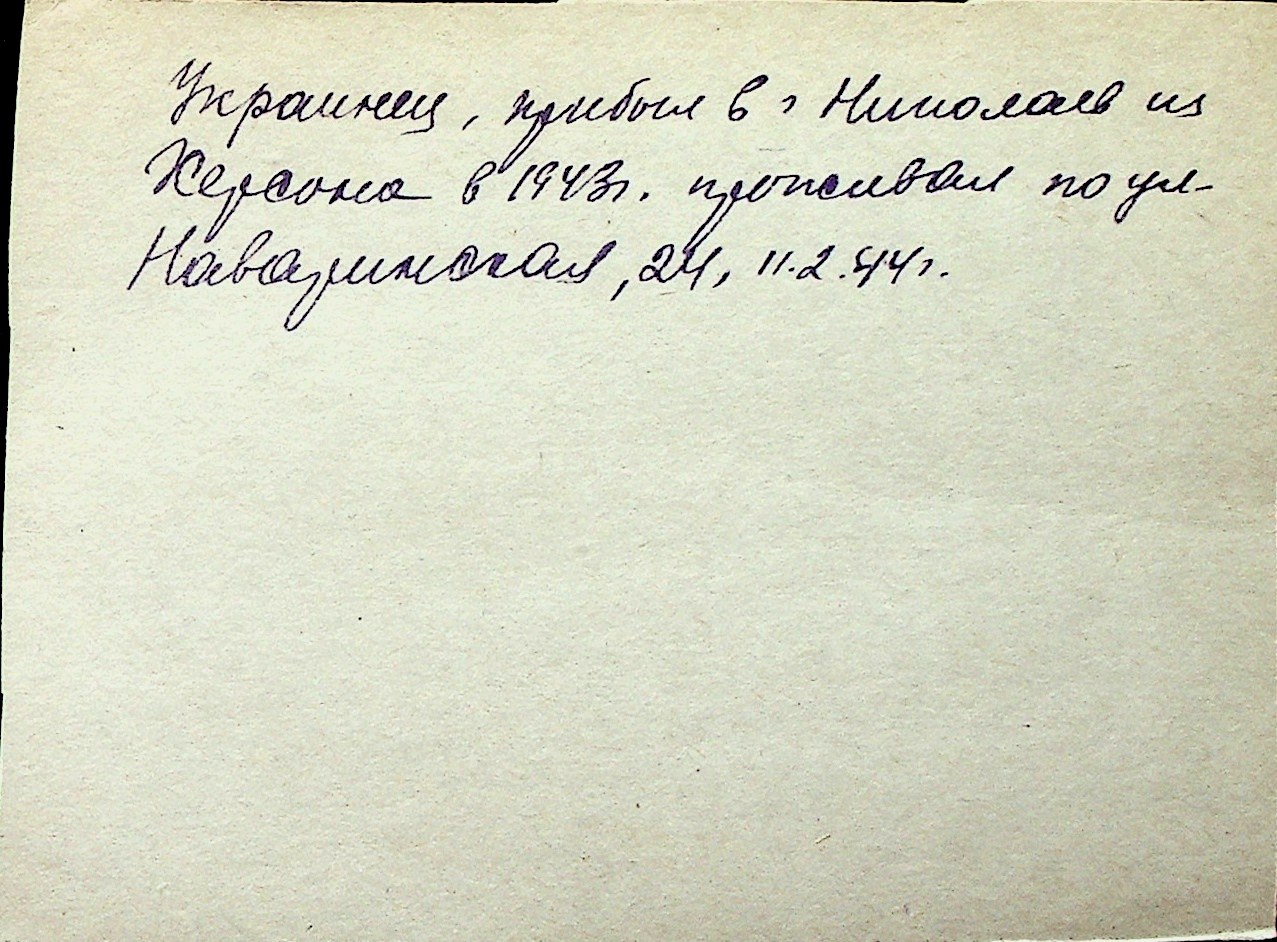 Украинец, прибыл в г Николаев из
Херсона в 1943г. проживал по ул-
Наваринская, 24, 11.2.44г.